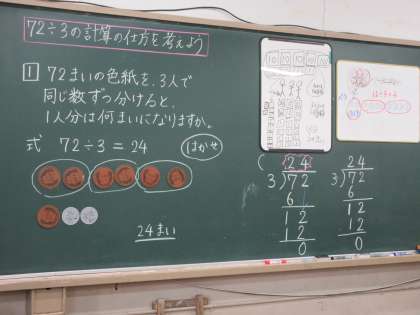 72÷3の計算の仕方を考えよう
1 72まいの色紙を、3人で
同じ数ずつ分けると、
1人分は何まいになりますか。
式 72÷3=24
はかせ
24まい
24
3)72
6
12
12
0
24
3)72
6
12
12
0